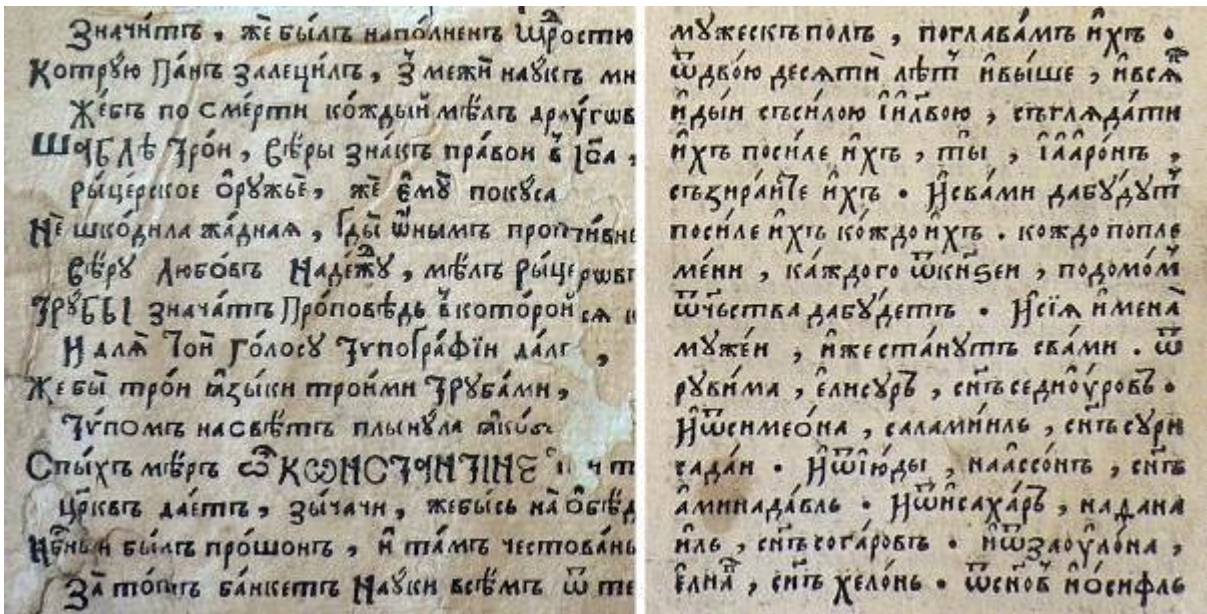 Значи́тъ , жѐ бы́лъ напо́лненъ ꙍ҆́ростю
Котру́ю Па́нъ залеци́лъ , з̾ межѝ нау́къ ми
Же́бъ по сме́рти ко́ждый мѣ́лъ
Ша́блѣ Тро́и , вѣ́ры зна́къ пра́вои в̾ І҃са ,
ры́церское ѻ҆ру́жье , жѐ є҆мꙋ̀ покуса
Нѐ шко́дила жа́дная , Гды̀ ѿны́мъ проти́вне
вѣ́ру Любо́въ Наде́жꙋ , мѣ́лъ рыцеровъ
Тру́бы значатъ Про́повѣдь в̾ кото́рой ся
И для̀ То́и го́лосу Тѵпоґра́фїи да́лъ ,
Же бы̀ тро́и ꙗ҆зы́ки трои́ми Труба́ми ,
Ту́помъ насвѣ́тъ плыну́ла
Спы́хъ мѣ́ръ ѿ КѠНСТАНТІНЕ
цр҃квъ дае́тъ , зы́чачи , жебы́сь на̀ ѻ҆бѣ́д
Нб҃ныи бы́лъ про́шонъ , и҆ та́мъ честова́нъ
За̀ то́тъ ба́нкетъ Нау́ки всѣ́мъ ѿ те
мꙋ́жескъ полъ , поглава́мъ и҆́хъ .
ѿдвою десятѝ лѣ́тъ и҆вы́ше , и҆вся̀
и҆ды́и съси́лою і҆и҃лвою , съгляда́ти
и҆́хъ поси́ле и҆́хъ , ты̀ , і҆ааро́нъ ,
съзира́ите и҆́хъ . И҆сва́ми дабу́дꙋтъ
поси́ле и҆́хъ ко́ждо и҆́хъ . кождо попле
ме́ни , ка́ждого ѿкнѕе́и , подомо́мъ
ѿчьства дабу́детъ . И҆сїѧ̀ и҆мена̀
муже́и , и҆жеста́нутъ сва́ми . ѿ
руви́ма , є҆лису́ръ , сн҃ъ седиоу́ровъ .
И҆ѿсимео́на , салами́иль , сн҃ъ сури
сада́и . И҆ѿїю́ды , наассо́нъ , сн҃ъ
а҆минада́вль . И҆ѿиса́ха́ръ , надана
и҆ль , сн҃ъ сога́ровъ . и҆ѿзаоуло́на ,
є҆лиа́въ , сн҃ъ хело́нь . ѿсн҃о́въ и҆ѻ́сифль